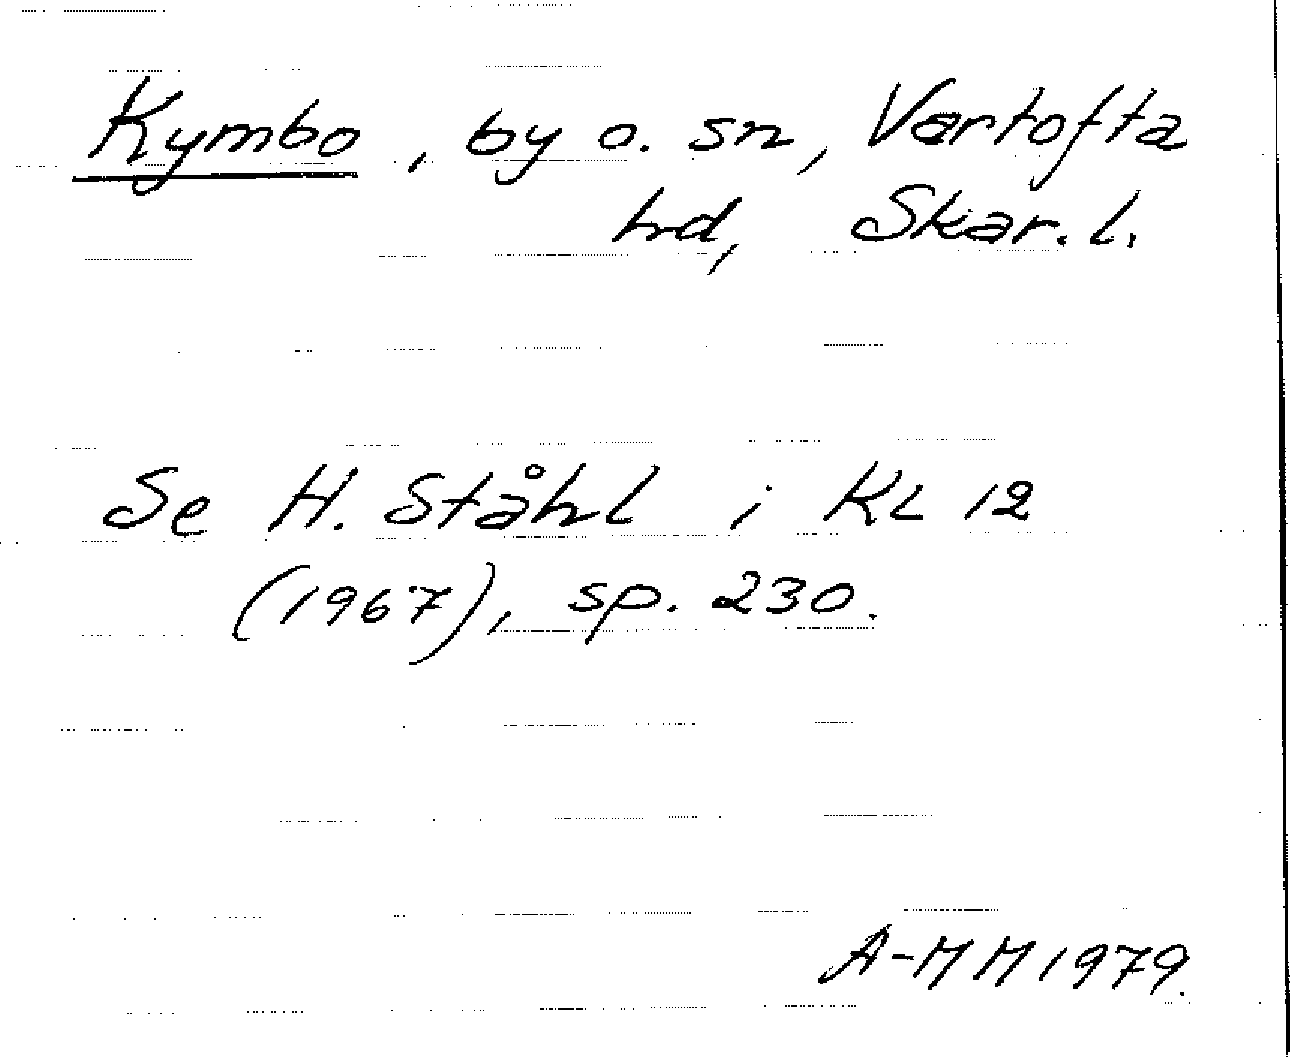 Kymbo, by o. sn, Vartofta
hd, Skar. l.
Se H. Ståhl i KL 12
(1967), sp. 230.
A-MM 1979.